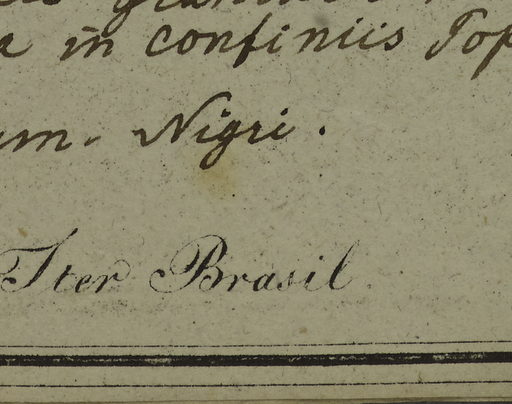 in confiniis Top
Nigri.
Iter Brasil